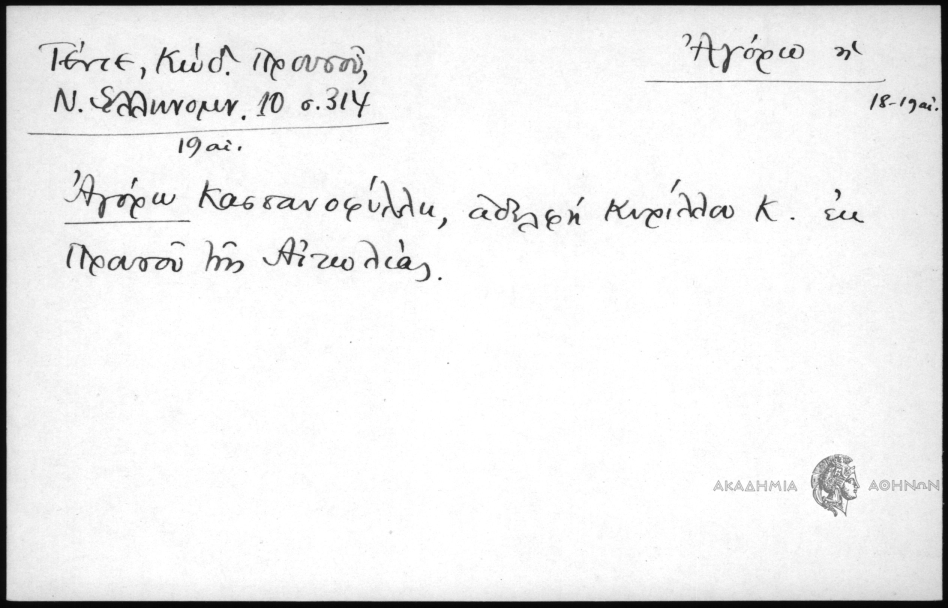 Τέντε, Κώδ. Προυσοῦ,
Ν. Ἑλληνομν. 10 σ.314
19 αἰ.
Ἀγόρω ἡ
18-19 αἰ.
Ἀγόρω Καστανοφύλλη, ἀδελφή Κυρίλλου Κ. ἐκ
Προυσοῦ τῆς Αἰτωλίας.
ΑΚΑΔΗΜΙΑ ΑΘΗΝΩΝ